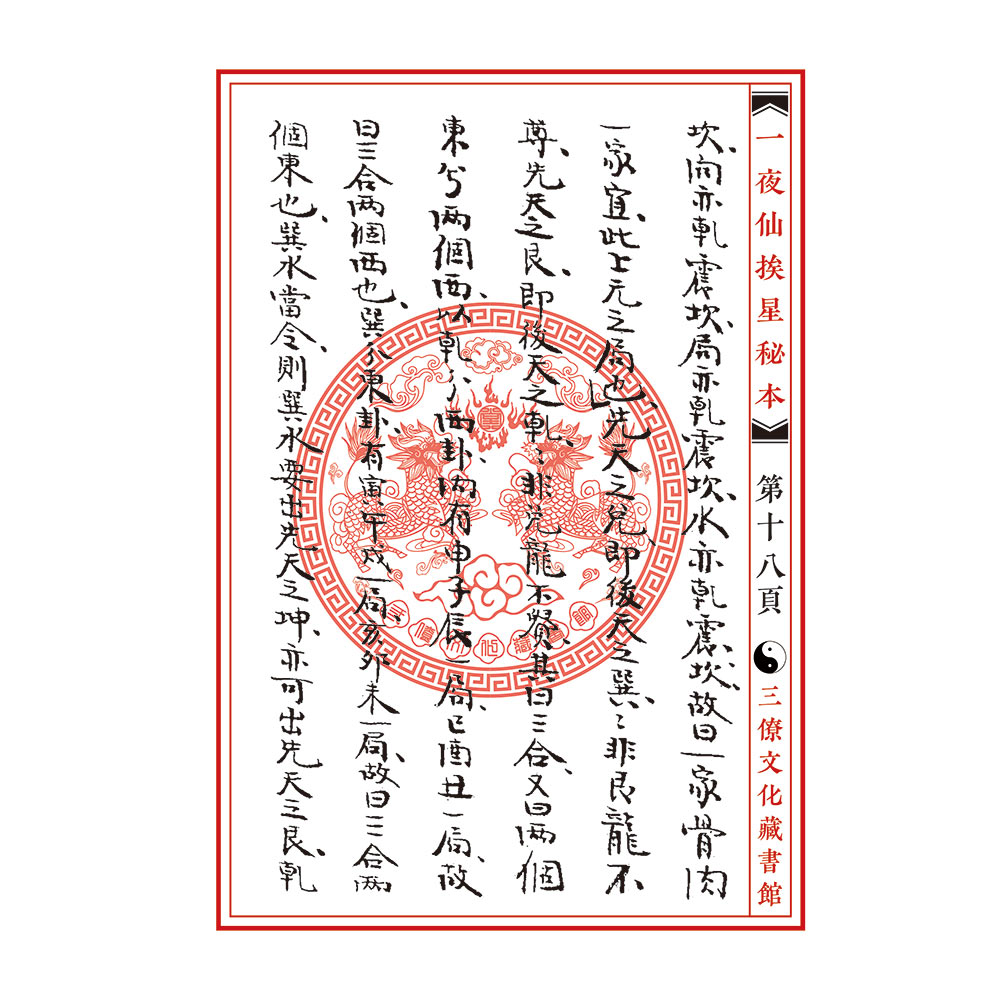 一夜仙挨星秘本
第十八頁
三僚文化藏書館
坎、向亦乹震坎、局亦乹震坎、水亦乹震、坎、故曰一家骨肉
一家宜、此上元之局也、先天之兌即後天之巽、〻非艮龍不
尊、先天之艮、即後天之乹、〻非兌龍不贤、其曰三合、又曰两個
東兮两個西、以乹〻西卦内有申子辰一局、巳酉丑一局、故
曰三合两個西也、巽〻東卦、有寅午戌一局、亥卯未一局、故曰三合两
個東也、巽水當令、則巽水要出先天之坤、亦可出先天之艮、乹